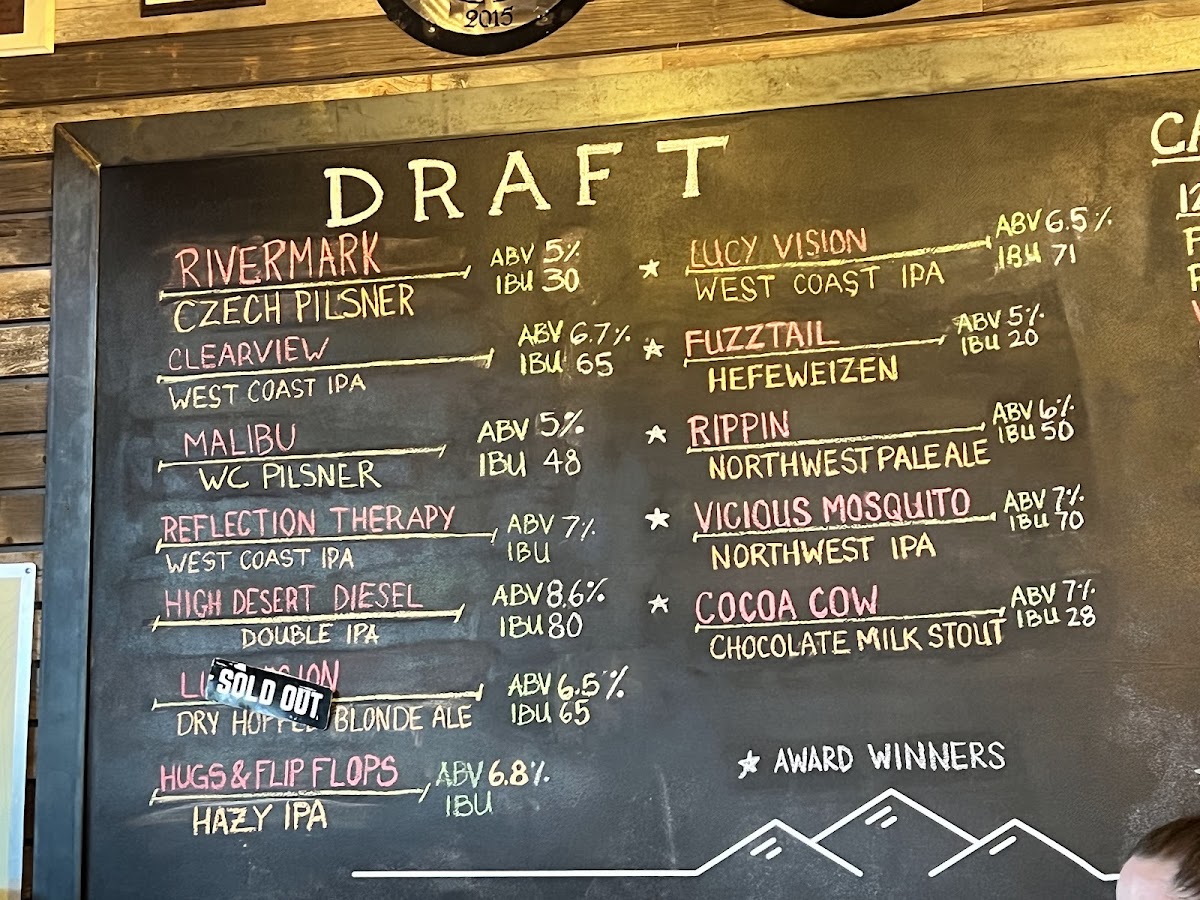 2015
DRAFT
RIVERMARK
ABV 5%
IBU 30
CZECH PILSNER
CLEARVIEW
ABV 6.7%
IBU 65
WEST COAST IPA
MALIBU
ABV 5%
IBU 48
WC PILSNER
REFLECTION THERAPY
ABV 7%
IBU
WEST COAST IPA
HIGH DESERT DIESEL
ABV 8.6%
IBU 80
DOUBLE IPA
SOLD OUT
ABV 6.5%
IBU 65
DRY BLONDE ALE
HUGS & FLIP FLOPS
ABV 6.8%
IBU
HAZY IPA
★ LUCY VISION
ABV 6.5%
IBU 71
WEST COAST IPA
★ FUZZTAIL
ABV 5%
IBU 20
HEFEWEIZEN
★ RIPPIN
ABV 6%
IBU 50
NORTHWEST PALE ALE
★ VICIOUS MOSQUITO
ABV 7%
IBU 70
NORTHWEST IPA
★ COCOA COW
ABV 7%
IBU 28
CHOCOLATE MILK STOUT
★ AWARD WINNERS